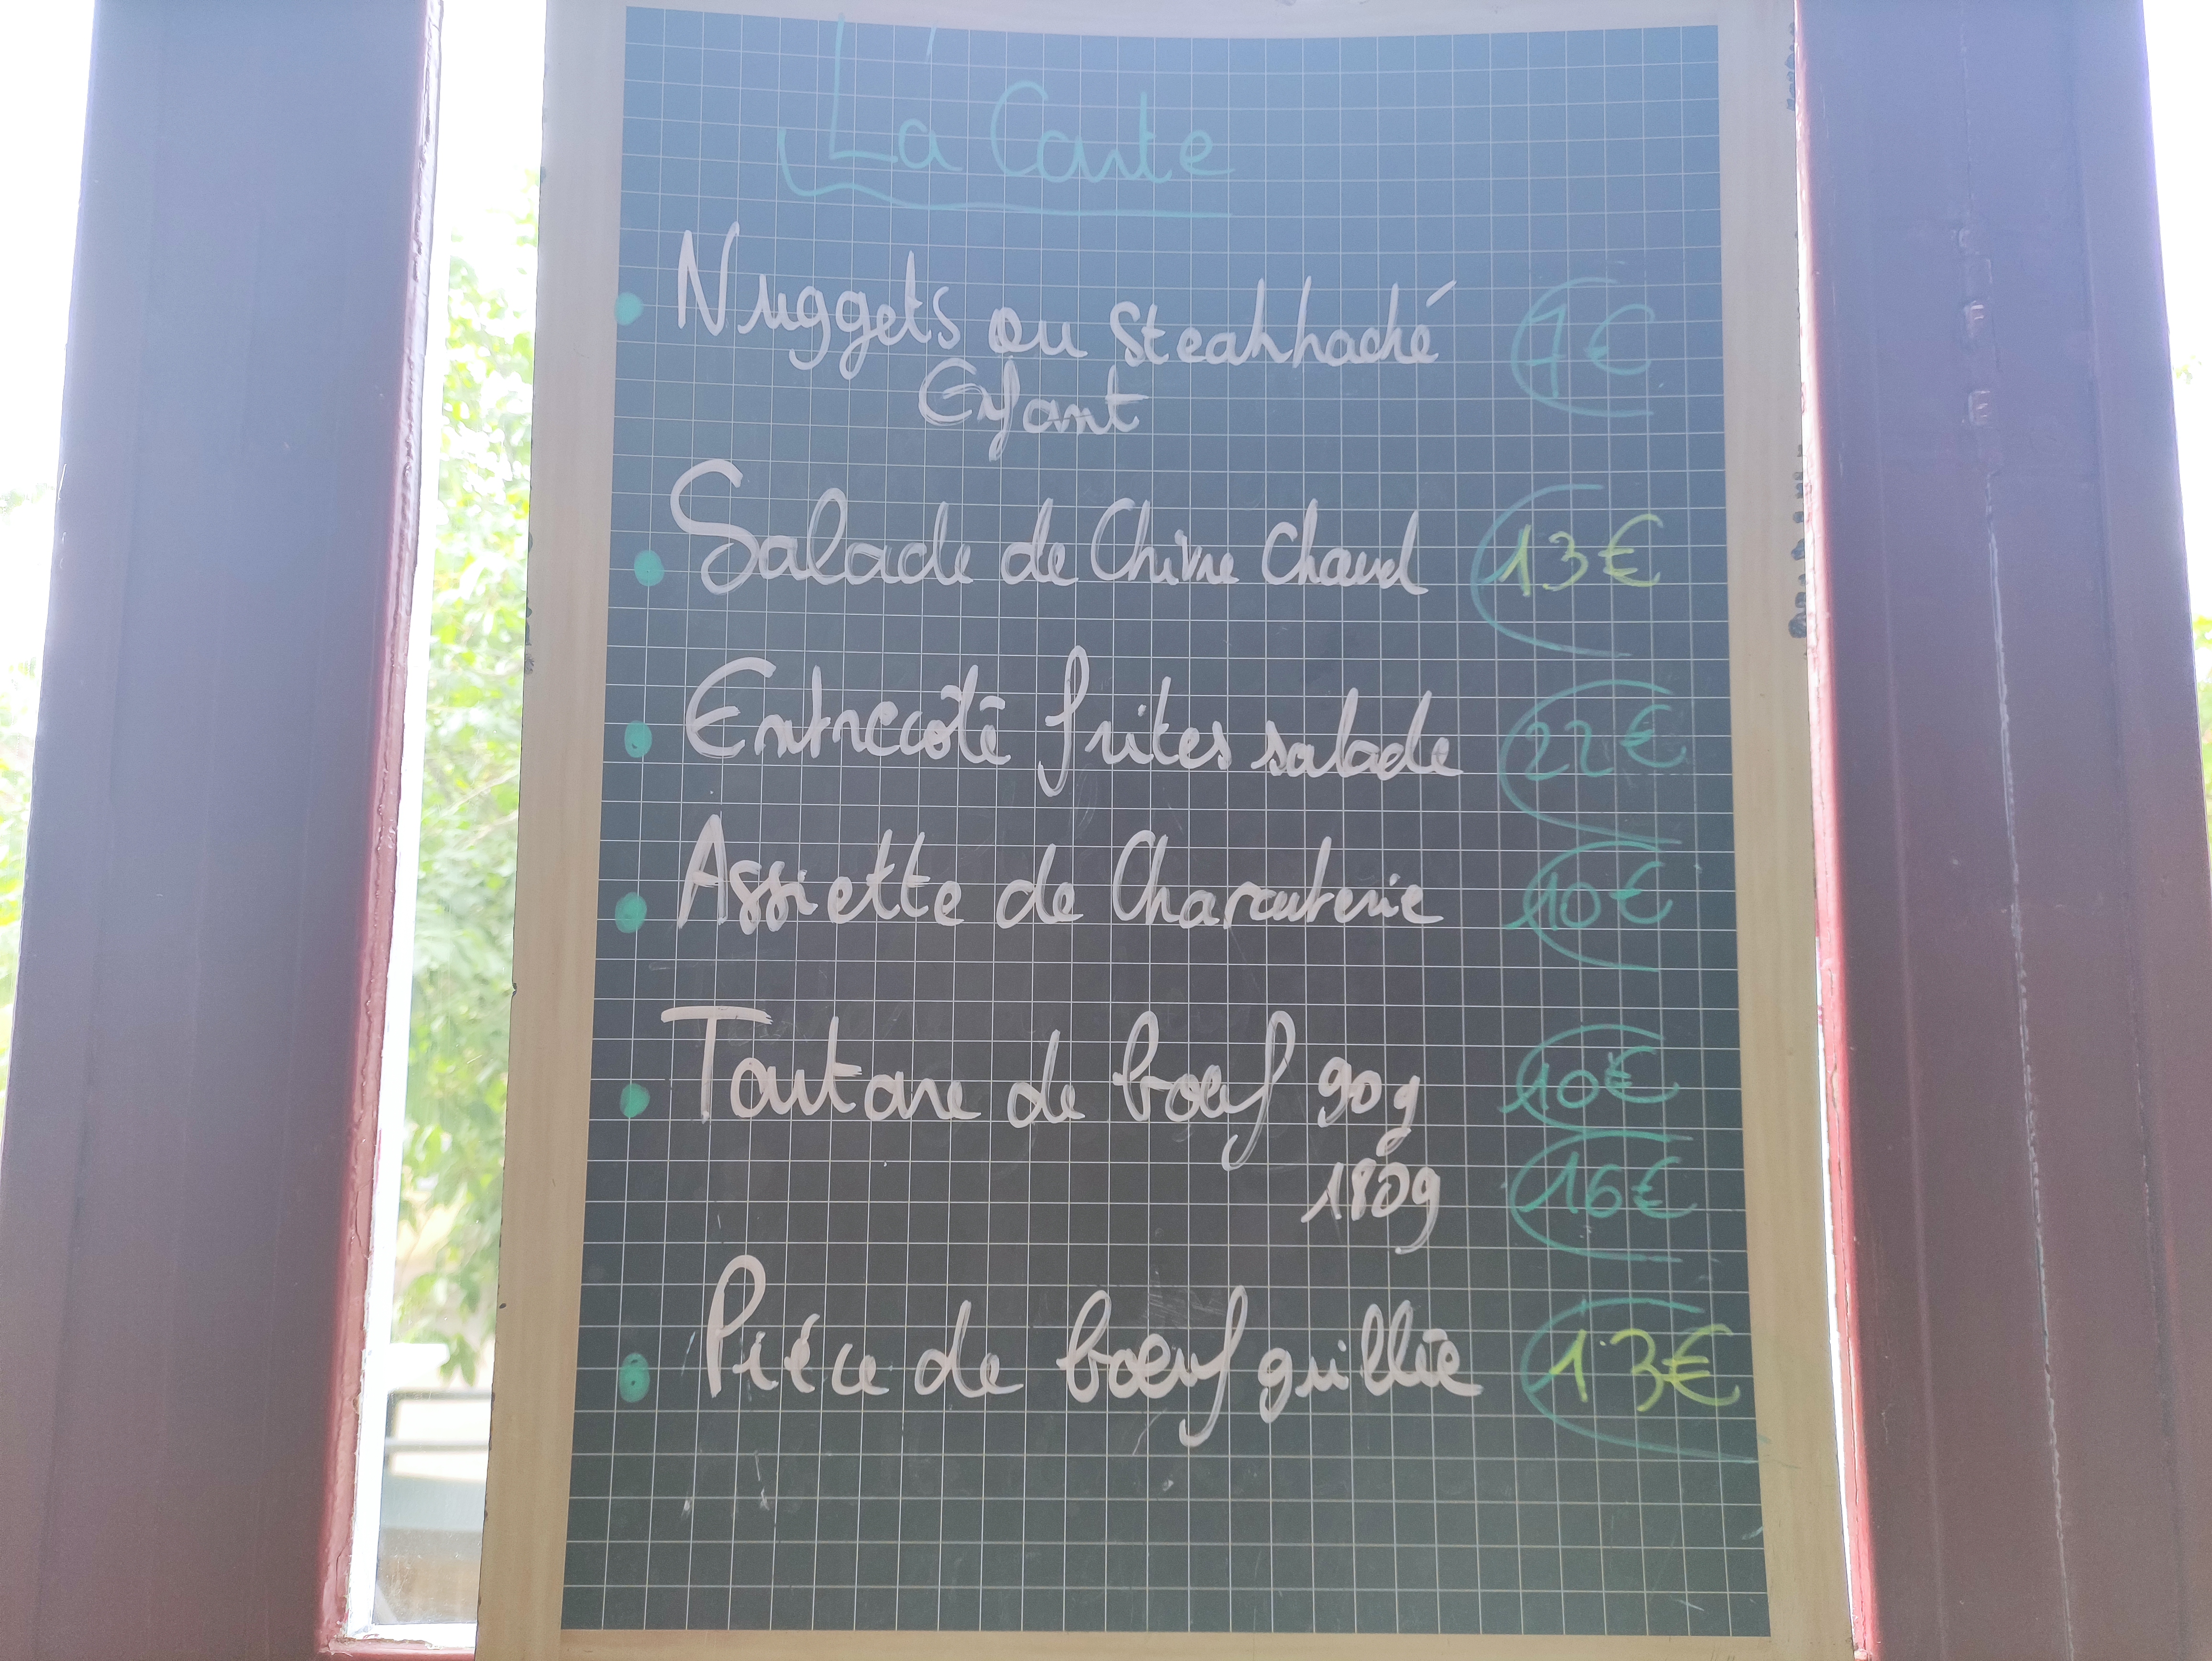 La Carte
Nuggets ou Steak haché 7€
Enfant
Salade de Chèvre Chaud 13€
Entrecôte frites salade 22€
Assiette de Charcuterie 10€
Tartare de bœuf 90g 10€
180g 16€
Piéce de bœuf grillée 13€